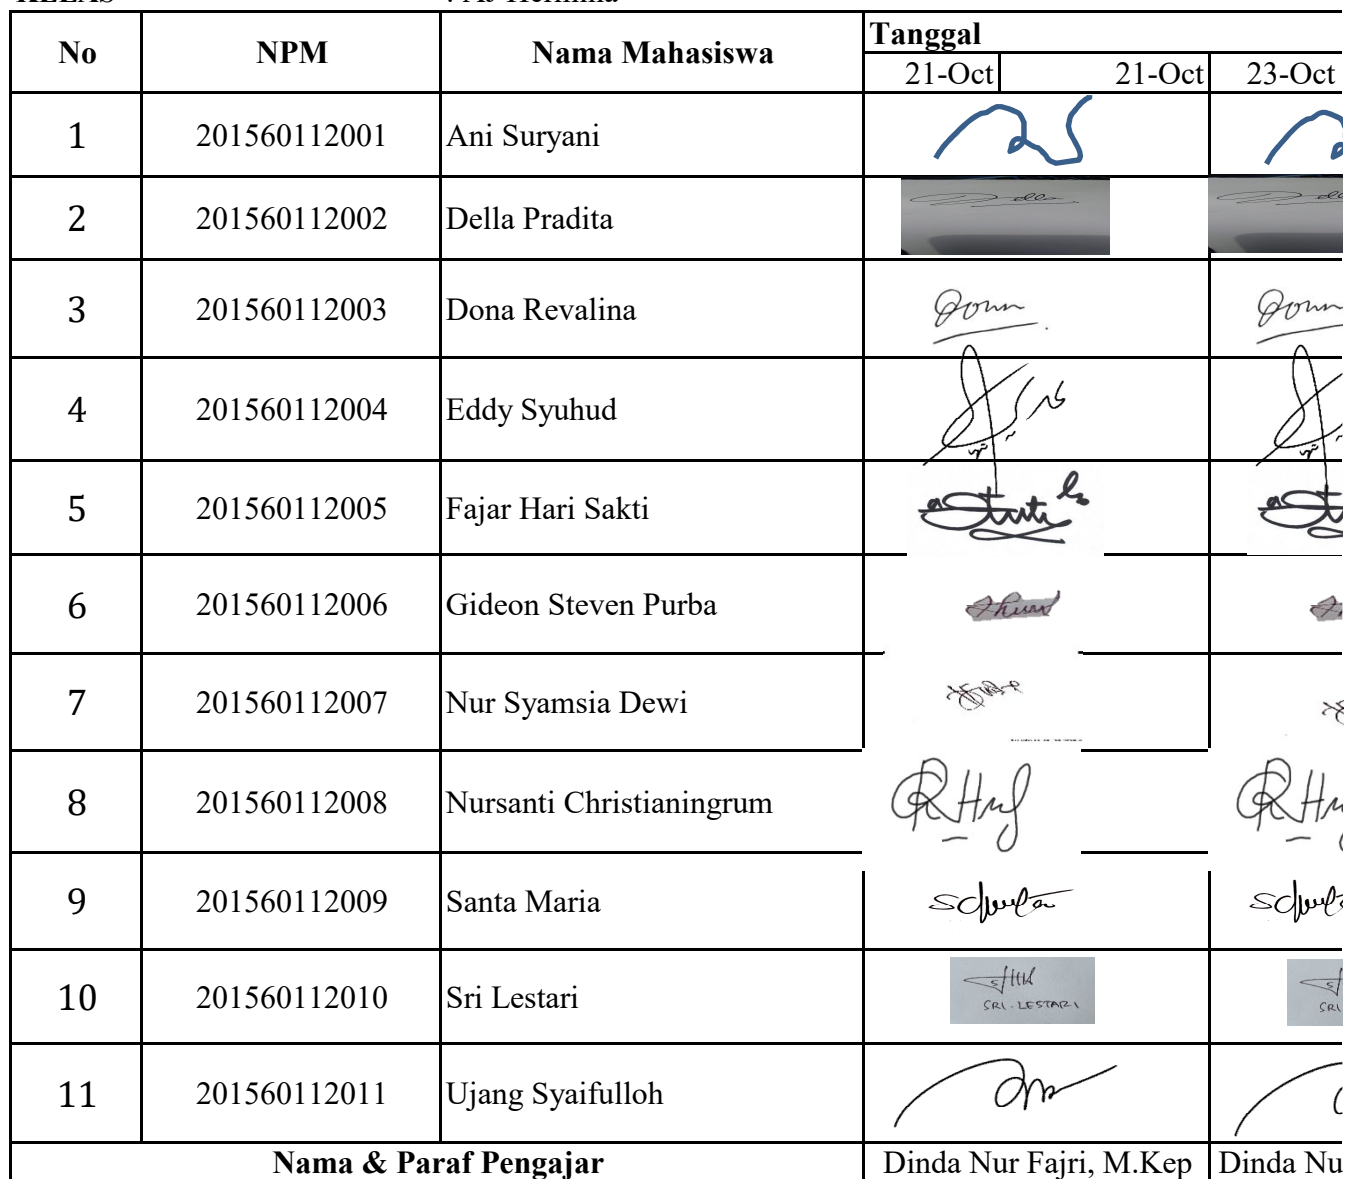 No NPM Nama Mahasiswa Tanggal
21-Oct 21-Oct 23-Oct
1 201560112001 Ani Suryani
2 201560112002 Della Pradita
3 201560112003 Dona Revalina
4 201560112004 Eddy Syuhud
5 201560112005 Fajar Hari Sakti
6 201560112006 Gideon Steven Purba
7 201560112007 Nur Syamsia Dewi
8 201560112008 Nursanti Christianingrum
9 201560112009 Santa Maria
10 201560112010 Sri Lestari
SRI.LESTARI
11 201560112011 Ujang Syaifulloh
Nama & Paraf Pengajar Dinda Nur Fajri, M.Kep Dinda Nu